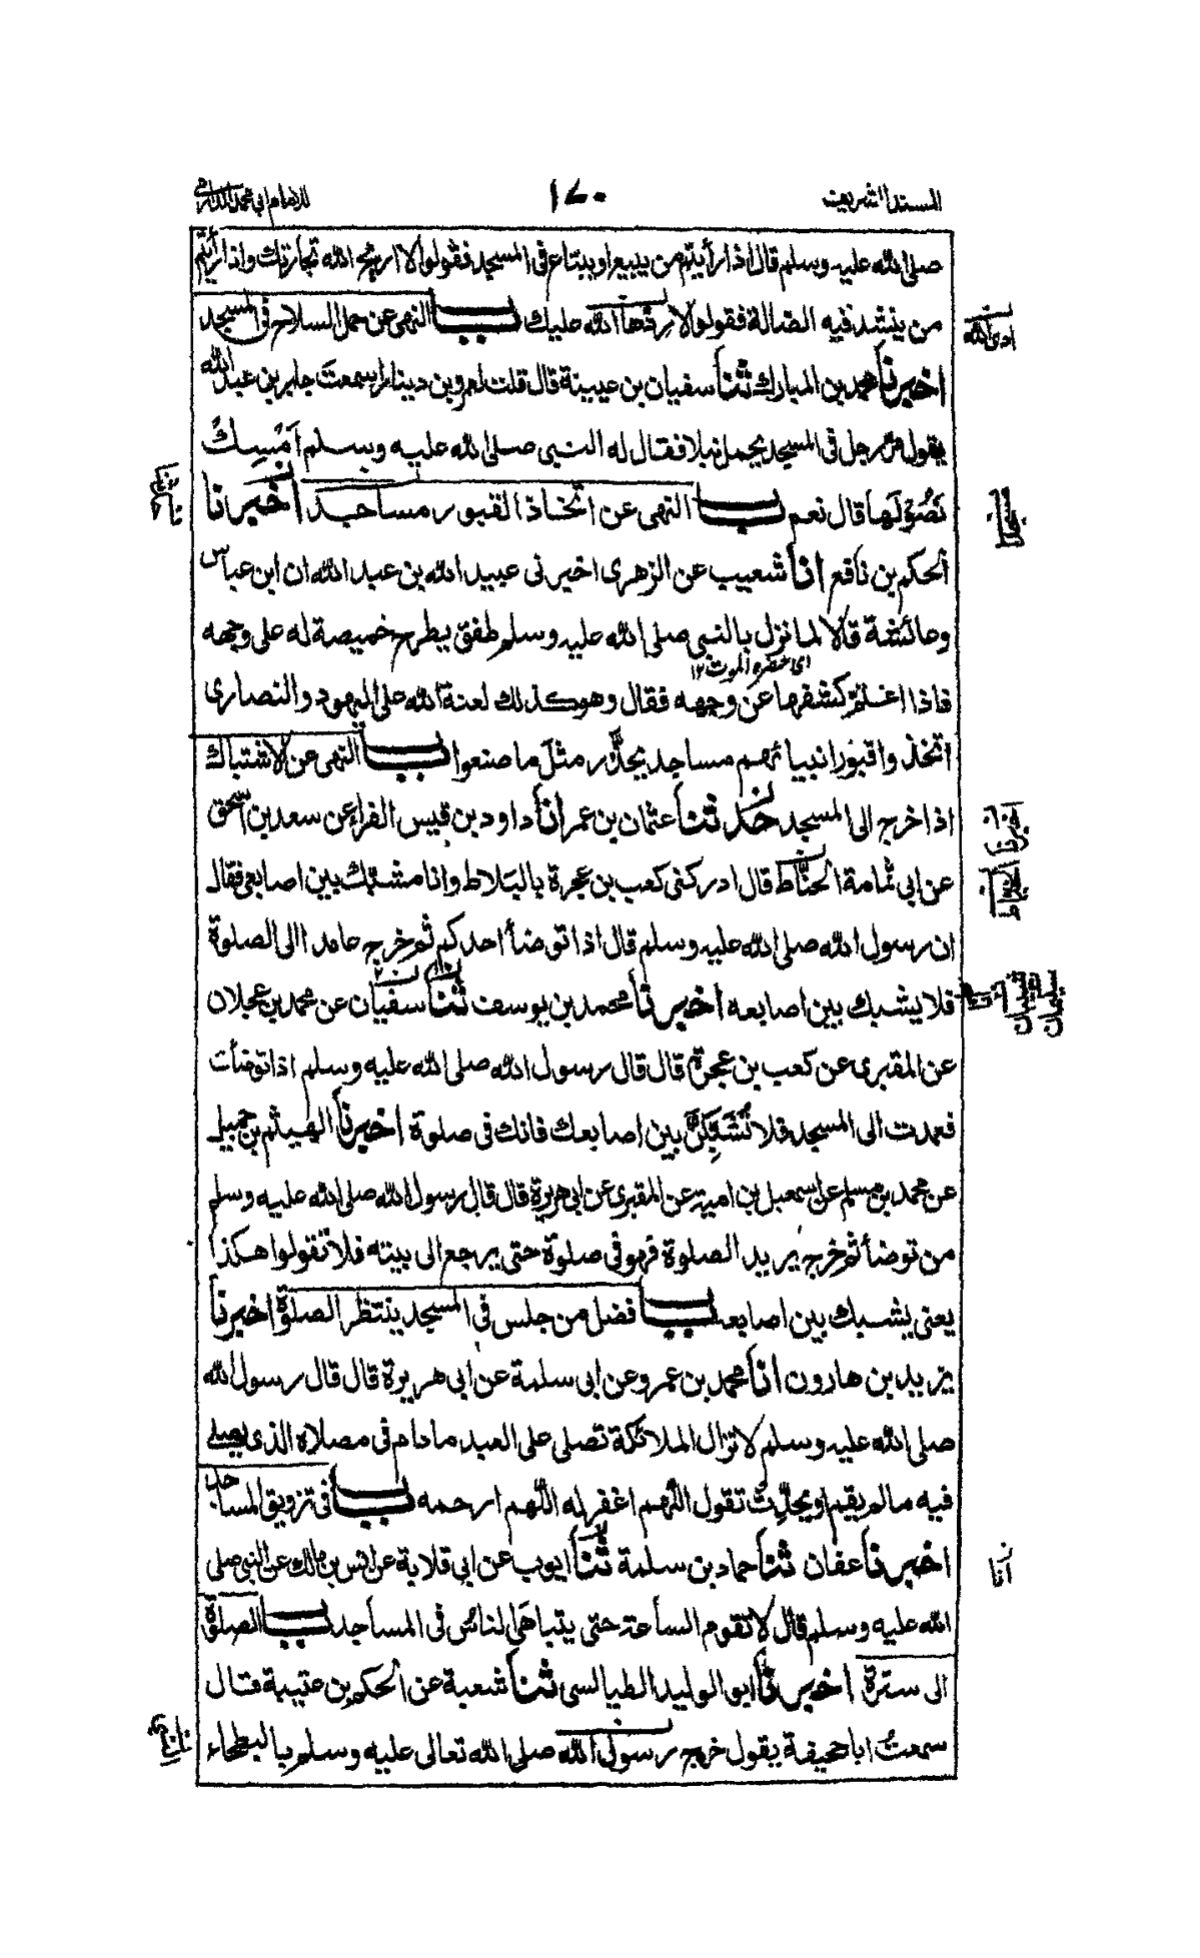 المسند الشريف ١٧٠ للامام ابي محمد الدارمي
صلى الله عليه وسلم قال اذا رأيتم من يبيع او يبتاع فى المسجد فقولوا لا اربح الله تجارتك واذا رأيتم
من ينشد فيه الضالة فقولوا لا ردها الله عليك باب النهى عن حمل السلاح فى المسجد
ادى الله
اخبرنا محمد بن المبارك ثنا سفيان بن عيينة قال قلت لعمرو بن دينار اسمعت جابر بن عبد الله
يقول مر رجل فى المسجد يحمل نبلا فقال له النبى صلى الله عليه وسلم امسك
نصولها قال نعم باب النهى عن اتخاذ القبور مساجد اخبرنا
الحكم بن نافع انا شعيب عن الزهرى اخبرنى عبيد الله بن عبد الله ان ابن عباس
وعائشة قالا لما نزل بالنبى صلى الله عليه وسلم طفق يطرح خميصة له على وجهه
اى حضره الموت ١٢
فاذا اغتم كشفها عن وجهه فقال وهو كذلك لعنة الله على اليهود والنصارى
اتخذوا قبور انبيائهم مساجد يحذر مثل ما صنعوا باب النهى عن الاشتباك
اذا خرج الى المسجد حدثنا عثمان بن عمر انا داود بن قيس الفراء عن سعد بن اسحق
اخبرنا
عن ابى ثمامة الحناط قال ادركنى كعب بن عجرة بالبلاط وانا مشتبك بين اصابعى فقال
الخياط
ان رسول الله صلى الله عليه وسلم قال اذا توضأ احدكم ثم خرج عامدا الى الصلوة
فلا يشبك بين اصابعه اخبرنا محمد بن يوسف ثنا سفيان عن محمد بن عجلان
سليمان
عن المقبرى عن كعب بن عجرة قال قال رسول الله صلى الله عليه وسلم اذا توضأت
فعمدت الى المسجد فلا تشبكن بين اصابعك فانك فى صلوة اخبرنا الهيثم بن جميل
عن محمد بن مسلم عن اسمعيل بن امية عن المقبرى عن ابى هريرة قال قال رسول الله صلى الله عليه وسلم
من توضأ ثم خرج يريد الصلوة فهو فى صلوة حتى يرجع الى بيته فلا تقولوا هكذا
يعنى يشبك بين اصابعه باب فضل من جلس فى المسجد ينتظر الصلوة اخبرنا
يزيد بن هارون انا محمد بن عمرو عن ابى سلمة عن ابى هريرة قال قال رسول الله
صلى الله عليه وسلم لا تزال الملائكة تصلى على العبد مادام فى مصلاه الذى يصلى
فيه مالم يقم او يحدث تقول اللهم اغفر له اللهم ارحمه باب فى تزويق المساجد
اخبرنا عفان ثنا حماد بن سلمة ثنا ايوب عن ابى قلابة عن انس بن مالك عن النبى صلى
انا
الله عليه وسلم قال لا تقوم الساعة حتى يتباهى الناس فى المساجد باب الصلوة
الى سترة اخبرنا ابو الوليد الطيالسى ثنا شعبة عن الحكم بن عتيبة قال
سمعت ابا جحيفة يقول خرج رسول الله صلى الله تعالى عليه وسلم بالبطحاء